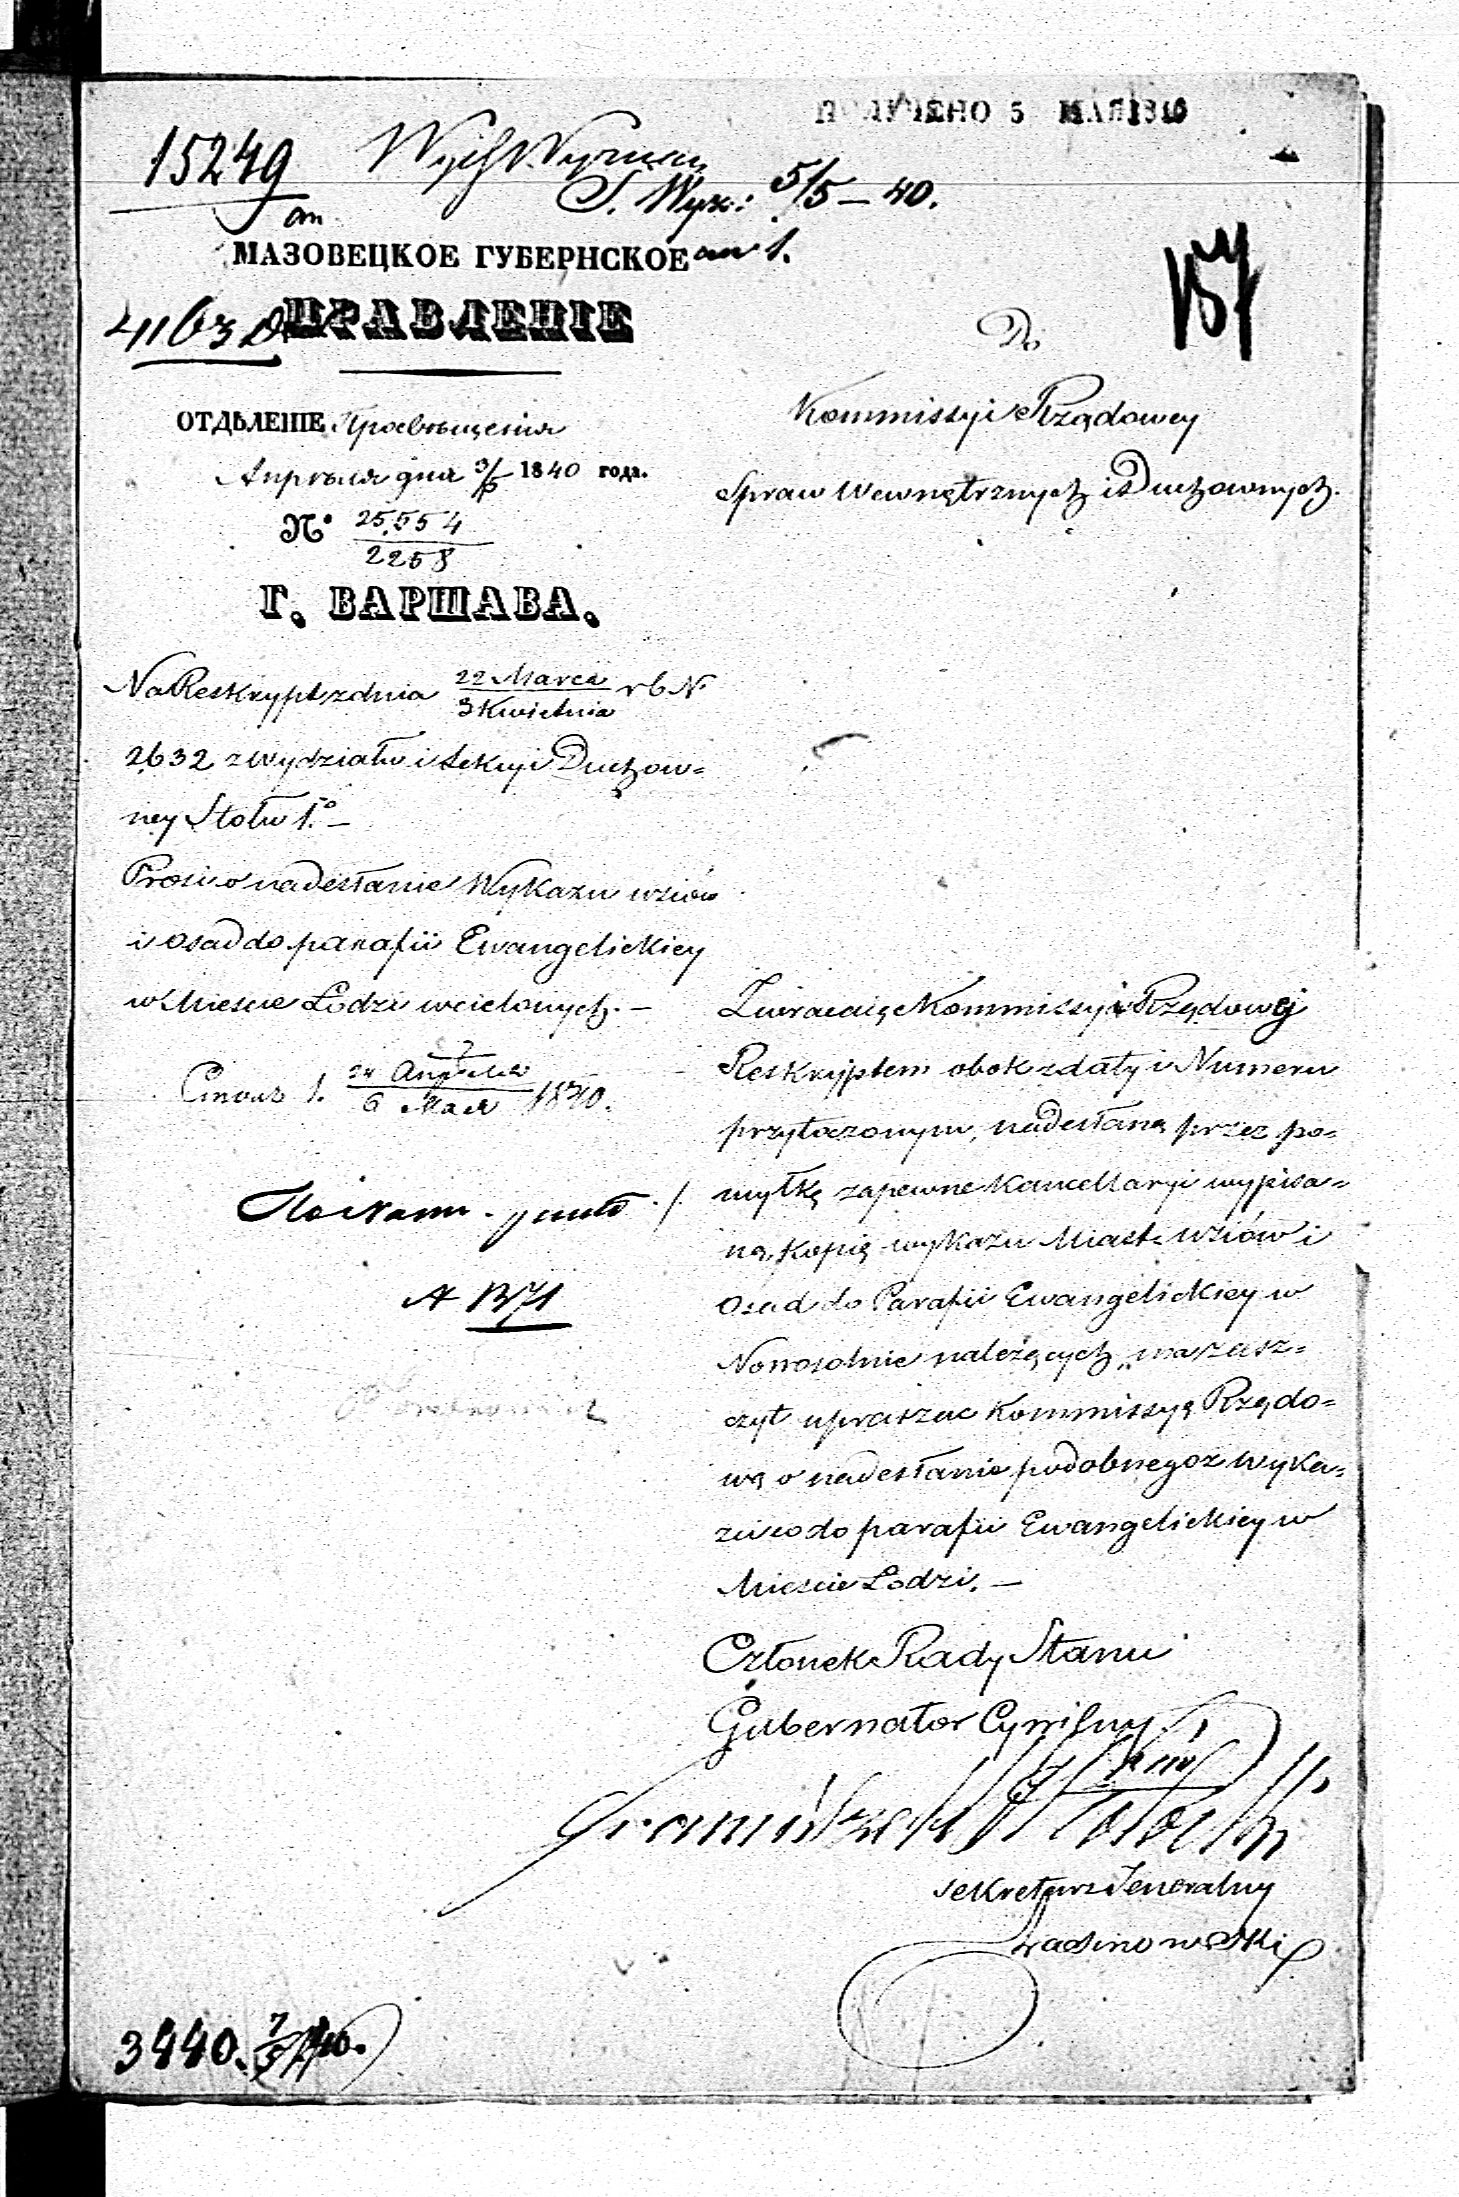 ПОЛУЧЕНО 5 МАЯ 1840
15249
5/5 – 40.
МАЗОВЕЦКОЕ ГУБЕРНСКОЕ
ПРАВЛЕНІЕ
ОТДѢЛЕНІЕ Просвѣщенія
Апрѣля дня 1840 года.
№ 25,554
2258
Г. ВАРШАВА.
Do
Kommissyi Rządowey
Spraw Wewnętrznych i Duchownych.
Na Reskrypt z dnia 22 Marca / 3 Kwietnia r b N.
2632 z wydziału i Sekcyi Duchow=
ney Stołu 1.° –
Prosi o nadesłanie Wykazu wsiów
i osad do parafii Ewangelickiey
w Mieście Łodzi wcielonych. –
24 Апрѣля
6 Мая 1840.
Zwracaiąc Kommissyi Rządowej
Reskryptem obok z daty i Numeru
przytoczonym, nadesłaną przez po=
myłkę zapewne Kancellaryi wypisa=
ną, Kopię wykazu Miast wsiów i
Osad do Parafii Ewangelickiey w
Nowosolnie należących, ma zasz=
czyt upraszac Kommissyą Rządo=
wą o nadesłanie podobnegoż wyka=
zu co do parafii Ewangelickiey w
Mieście Łodzi. –
Członek Rady Stanu
Gubernator Cywilny
Sekretarz Jeneralny
3440. 7/5 40.